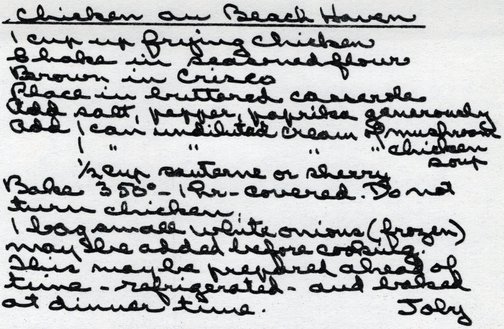 Chicken au Beach Haven
1 cup up frying chicken
Shake in seasoned flour
Brown in Crisco
Place in buttered casserole
Add salt, pepper, paprika generously
Add 1 can undiluted cream of mushroom
1 " " " " chicken
soup
1/2 cup sauterne or sherry
Bake 350° - 1 hr - covered. Do not
turn chicken.
1 bag small white onions (frozen)
may be added before cooking.
This may be prepared ahead of
time - refrigerated - and baked
at dinner time. Joby